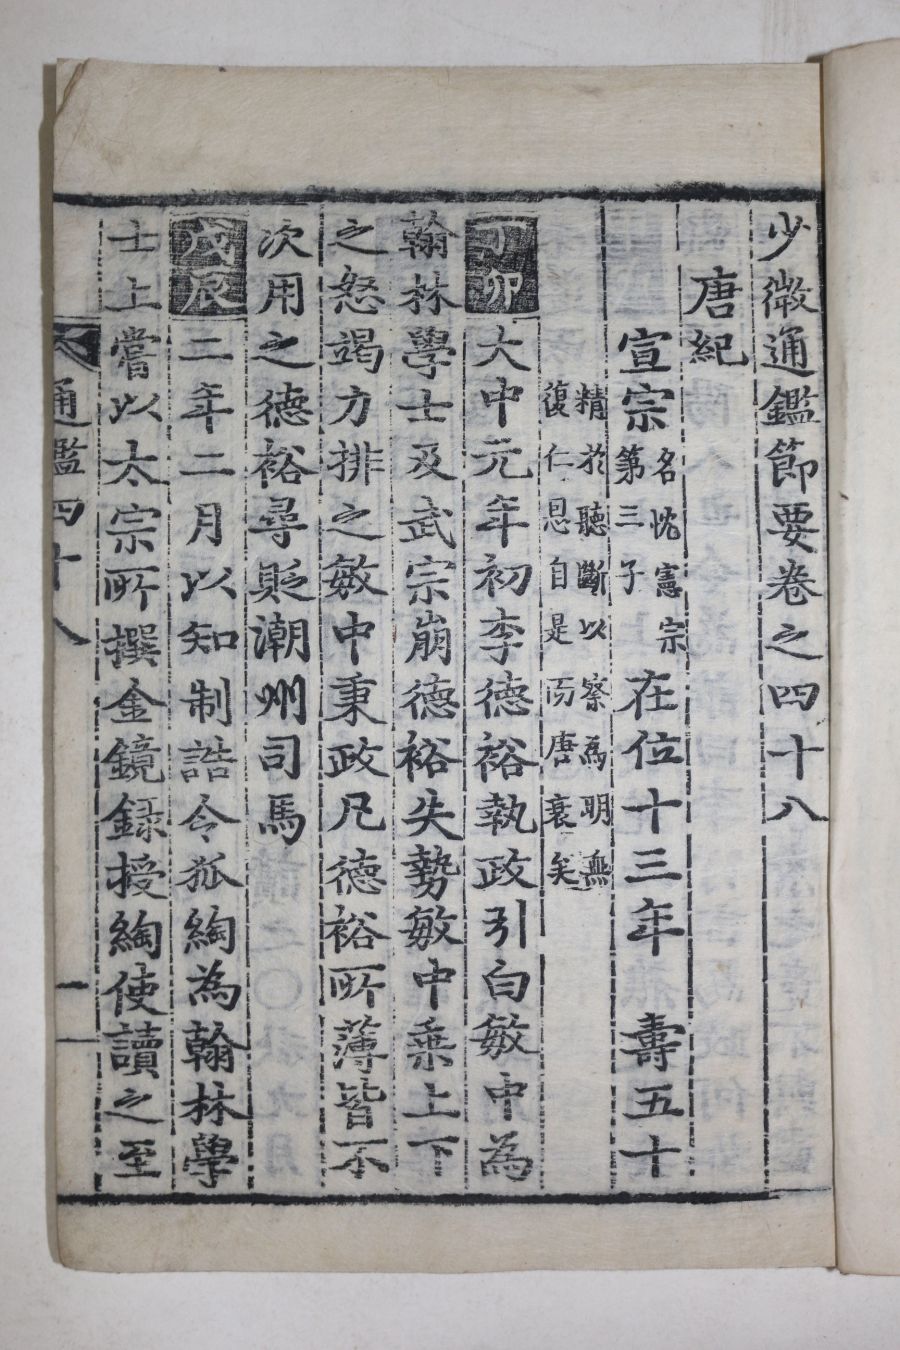 少微通鑑節要卷之四十八
唐紀
宣宗 名忱憲宗第三子 在位十三年 壽五十
精於聽斷以察為明無復仁恩自是而唐衰矣
丁卯 大中元年初李德裕執政引白敏中為
翰林學士及武宗崩德裕失勢敏中乗上下
之怒竭力排之敏中秉政凡德裕所薄皆不
次用之德裕尋貶潮州司馬
戊辰 二年二月以知制誥令狐綯為翰林學
士上嘗以太宗所撰金鏡録授綯使讀之至
通鑑四十八 一